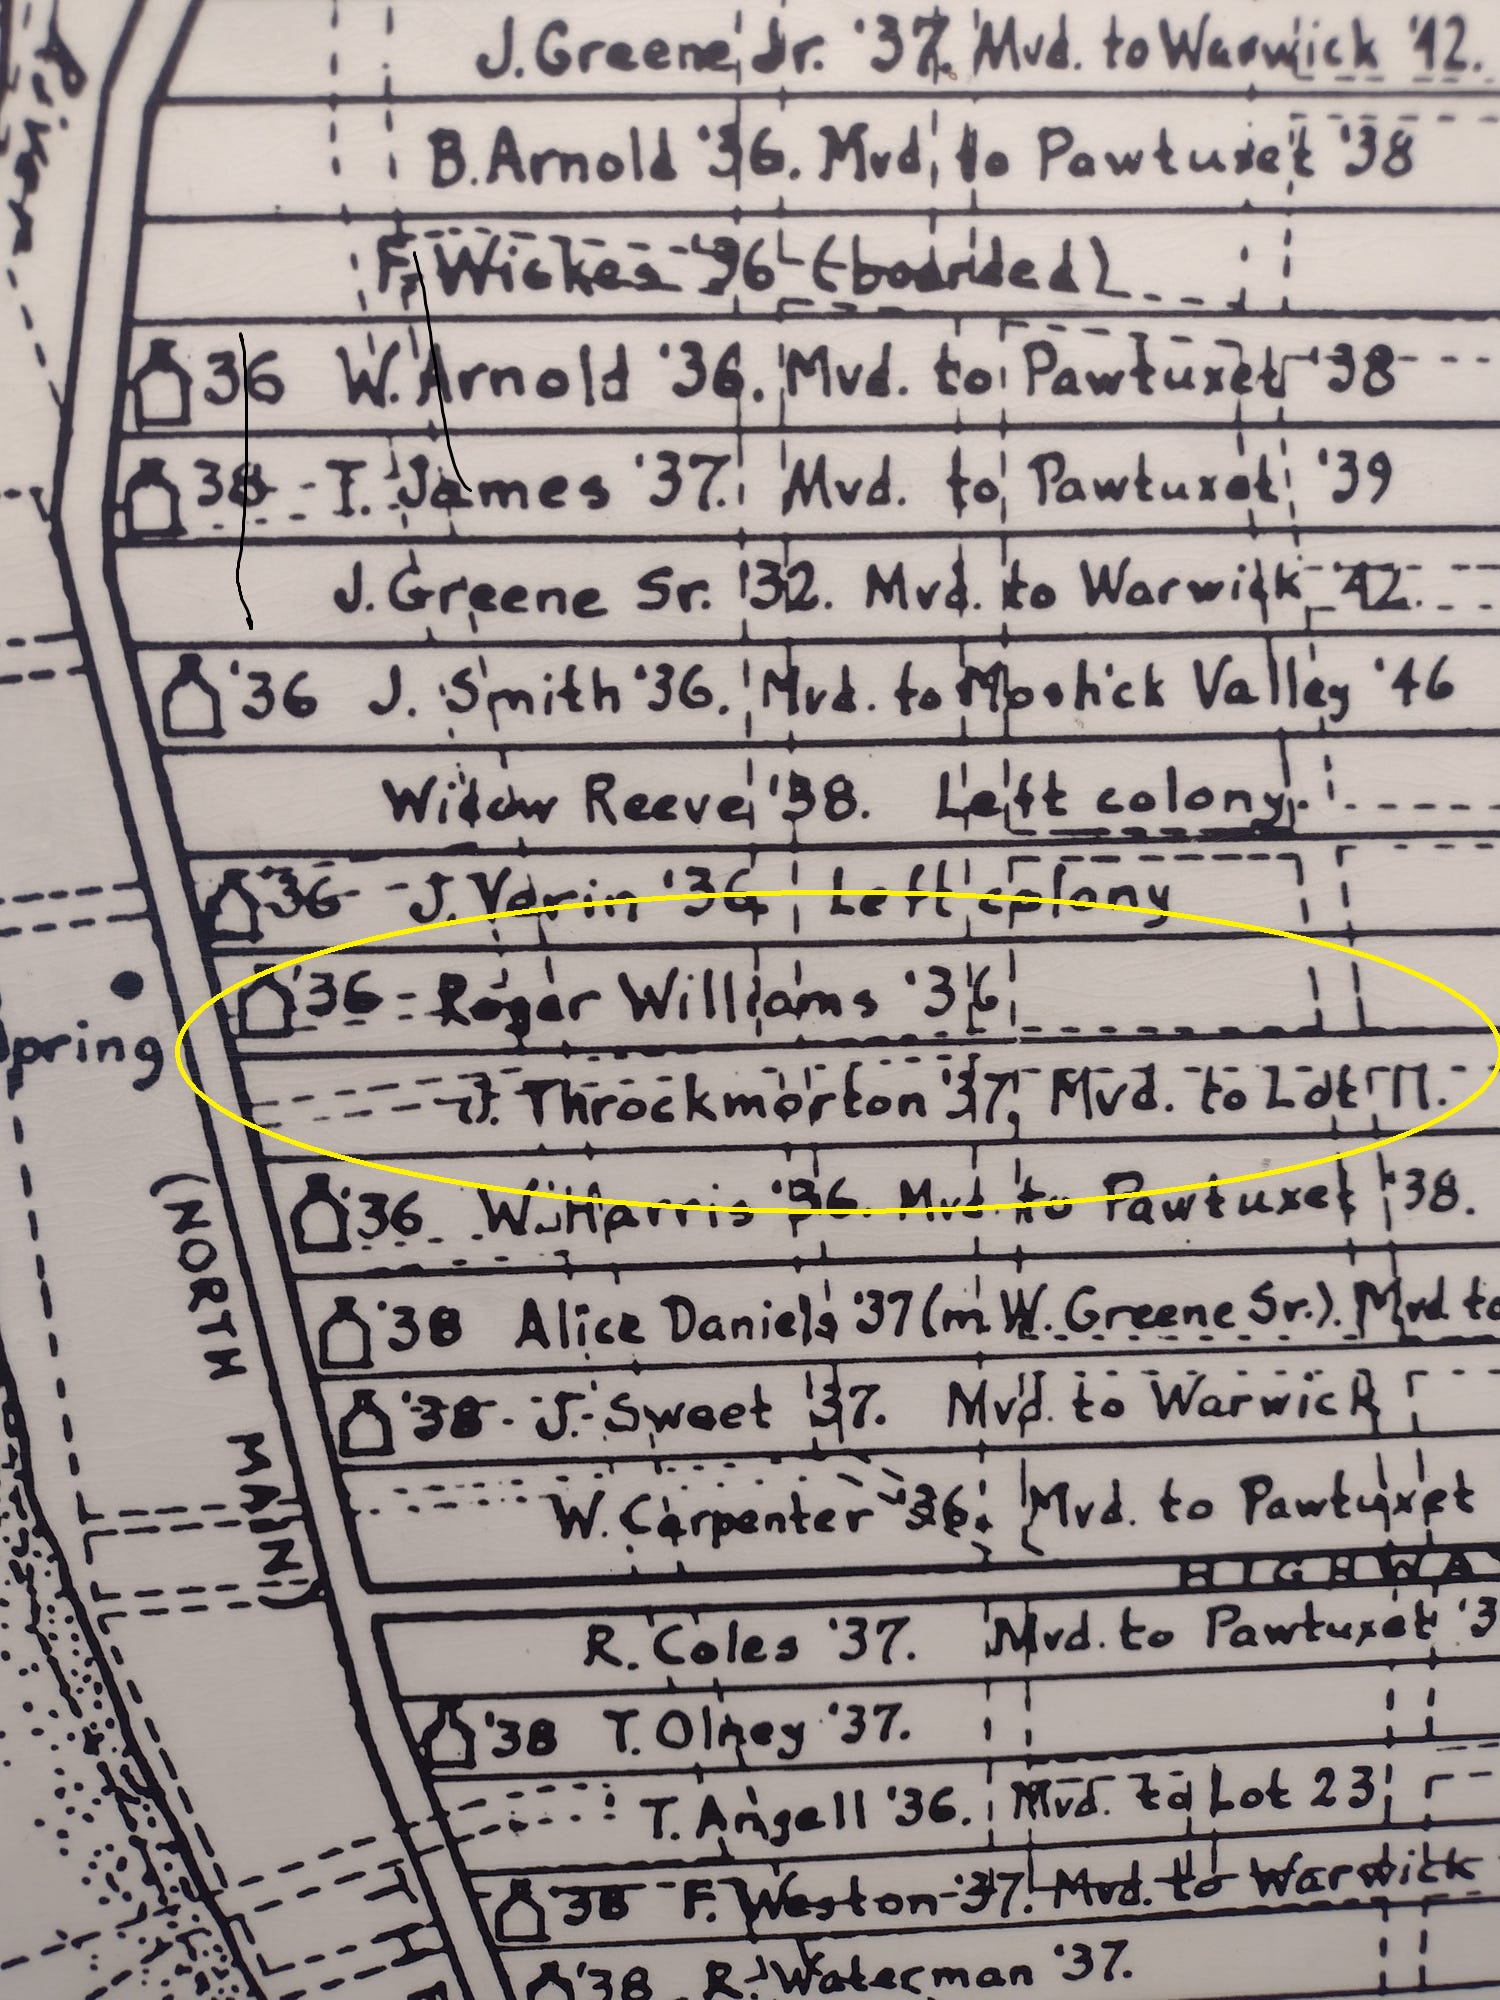 J. Greene Jr. '37. Mvd. to Warwick '42.
B. Arnold '36. Mvd. to Pawtuxet '38
F. Wickes '36 (boarded)
36 W. Arnold '36. Mvd. to Pawtuxet '38
38 T. James '37. Mvd. to Pawtuxet '39
J. Greene Sr. '32. Mvd. to Warwick 42.
'36 J. Smith '36. Mvd. to Moshick Valley '46
Widow Reeve '38. Left colony.
'36 J. Verin '36 Left colony
'36 Roger Williams '36
pring
J. Throckmorton '37, Mvd. to Lot 17.
'36 W. Harris '36. Mvd. to Pawtuxet '38.
'38 Alice Daniels '37 (m W. Greene Sr.). Mvd to
'38 J. Sweet '37. Mvd. to Warwick
W. Carpenter '36. Mvd. to Pawtuxet
(NORTH MAIN)
HIGHWA
R. Coles '37. Mvd. to Pawtuxet '3
'38 T. Olney '37.
T. Angell '36. Mvd. to Lot 23
'38 F. Weston '37. Mvd. to Warwick
'38 R. Waterman '37.
THE